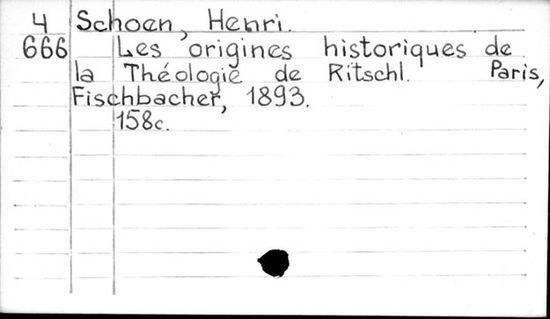 4 Schoen, Henri.
666 Les origines historiques de
la Théologie de Ritschl. Paris,
Fischbacher, 1893.
158c.